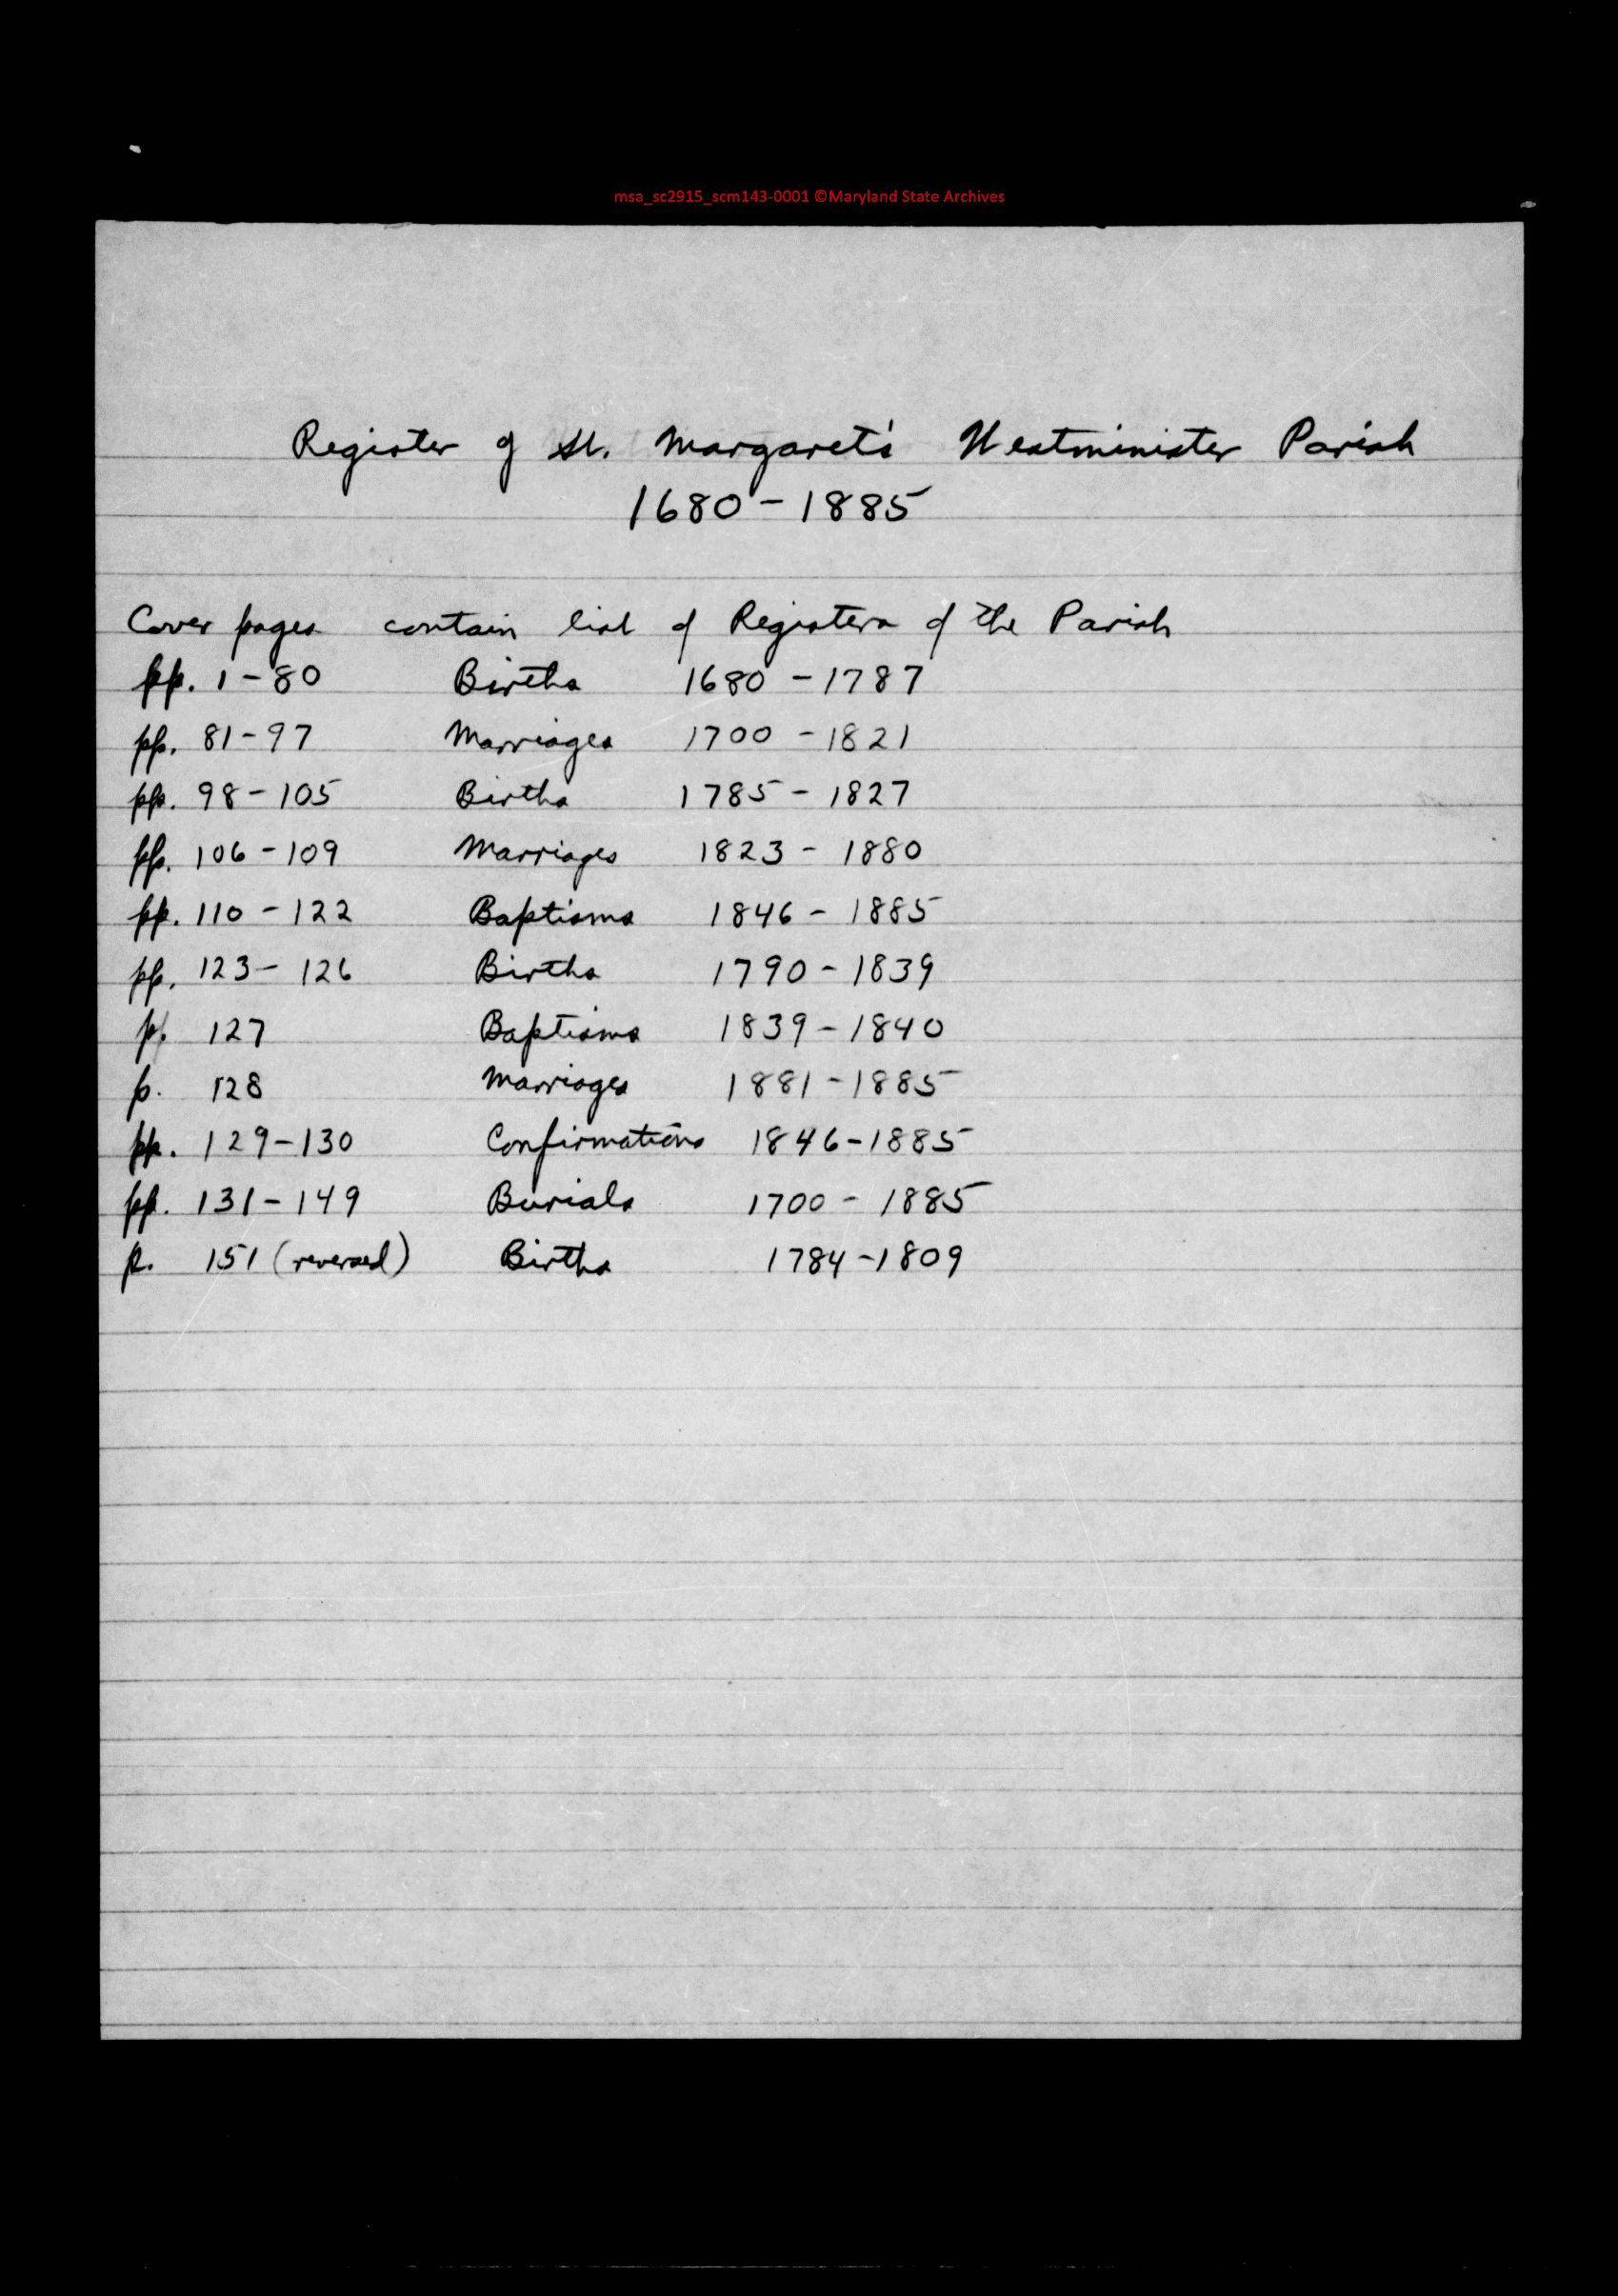 msa_sc2915_scm143-0001 ©Maryland State Archives
Register of St. Margaret's Westminister Parish
1680-1885
Cover pages contain list of Registers of the Parish
pp. 1-80 Births 1680-1787
pp. 81-97 Marriages 1700-1821
pp. 98-105 Births 1785-1827
pp. 106-109 Marriages 1823-1880
pp. 110-122 Baptisms 1846-1885
pp. 123-126 Births 1790-1839
p. 127 Baptisms 1839-1840
p. 128 Marriages 1881-1885
pp. 129-130 Confirmations 1846-1885
pp. 131-149 Burials 1700-1885
p. 151 (reversed) Births 1784-1809